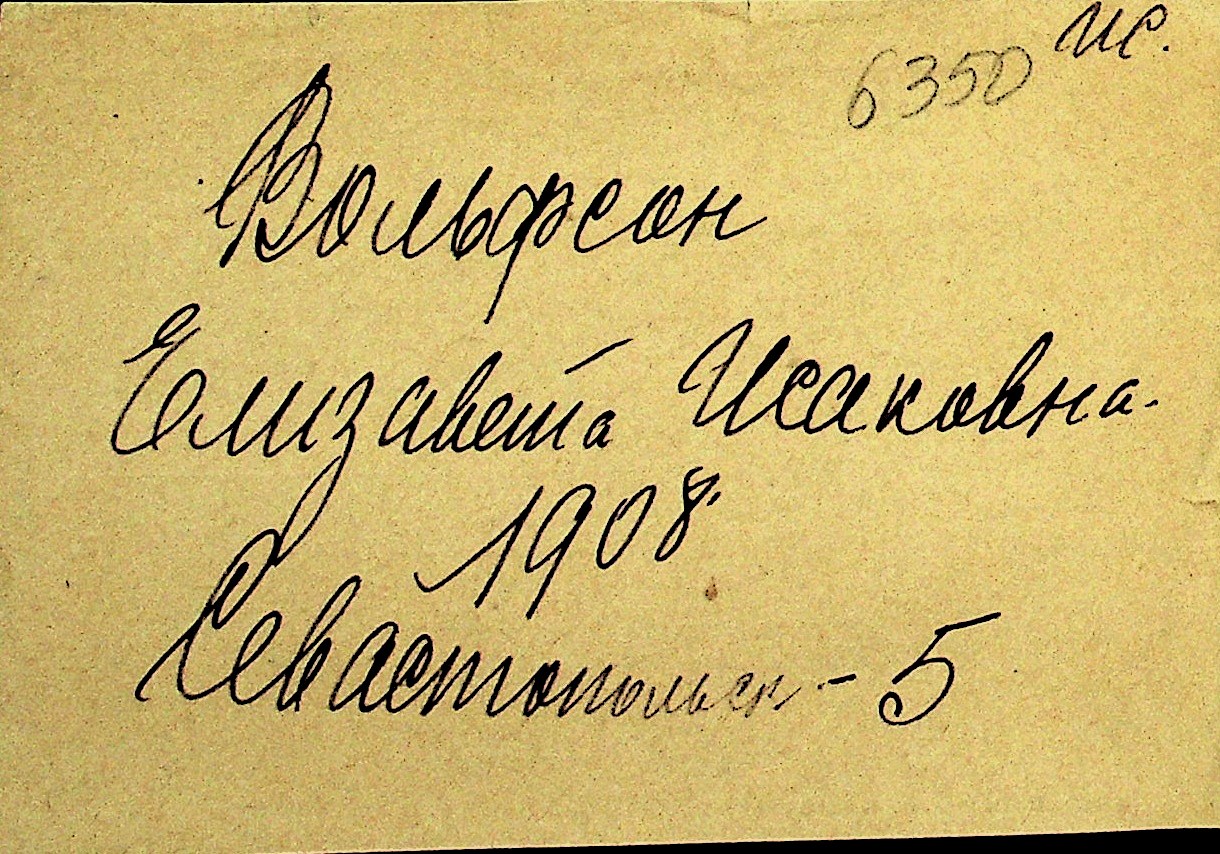 ис.
6350
Вольфсон
Елизавета Исаковна.
1908
Севастопольск - 5